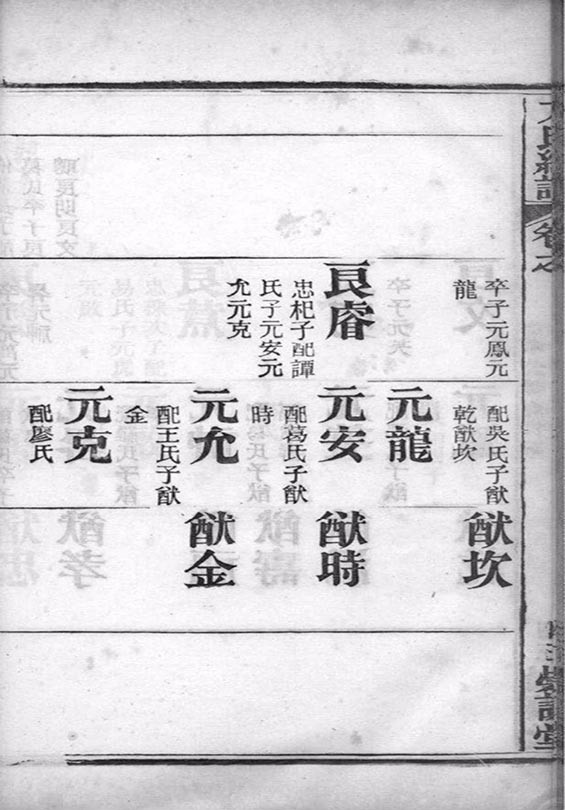 卷之
卒子元鳳元
龍
良睿
忠杞子配譚
氏子元安元
允元克
配吳氏子猷
乾猷坎
元龍
元安
配葛氏子猷
時
元允
配王氏子猷
金
元克
配廖氏
猷坎
猷時
猷金